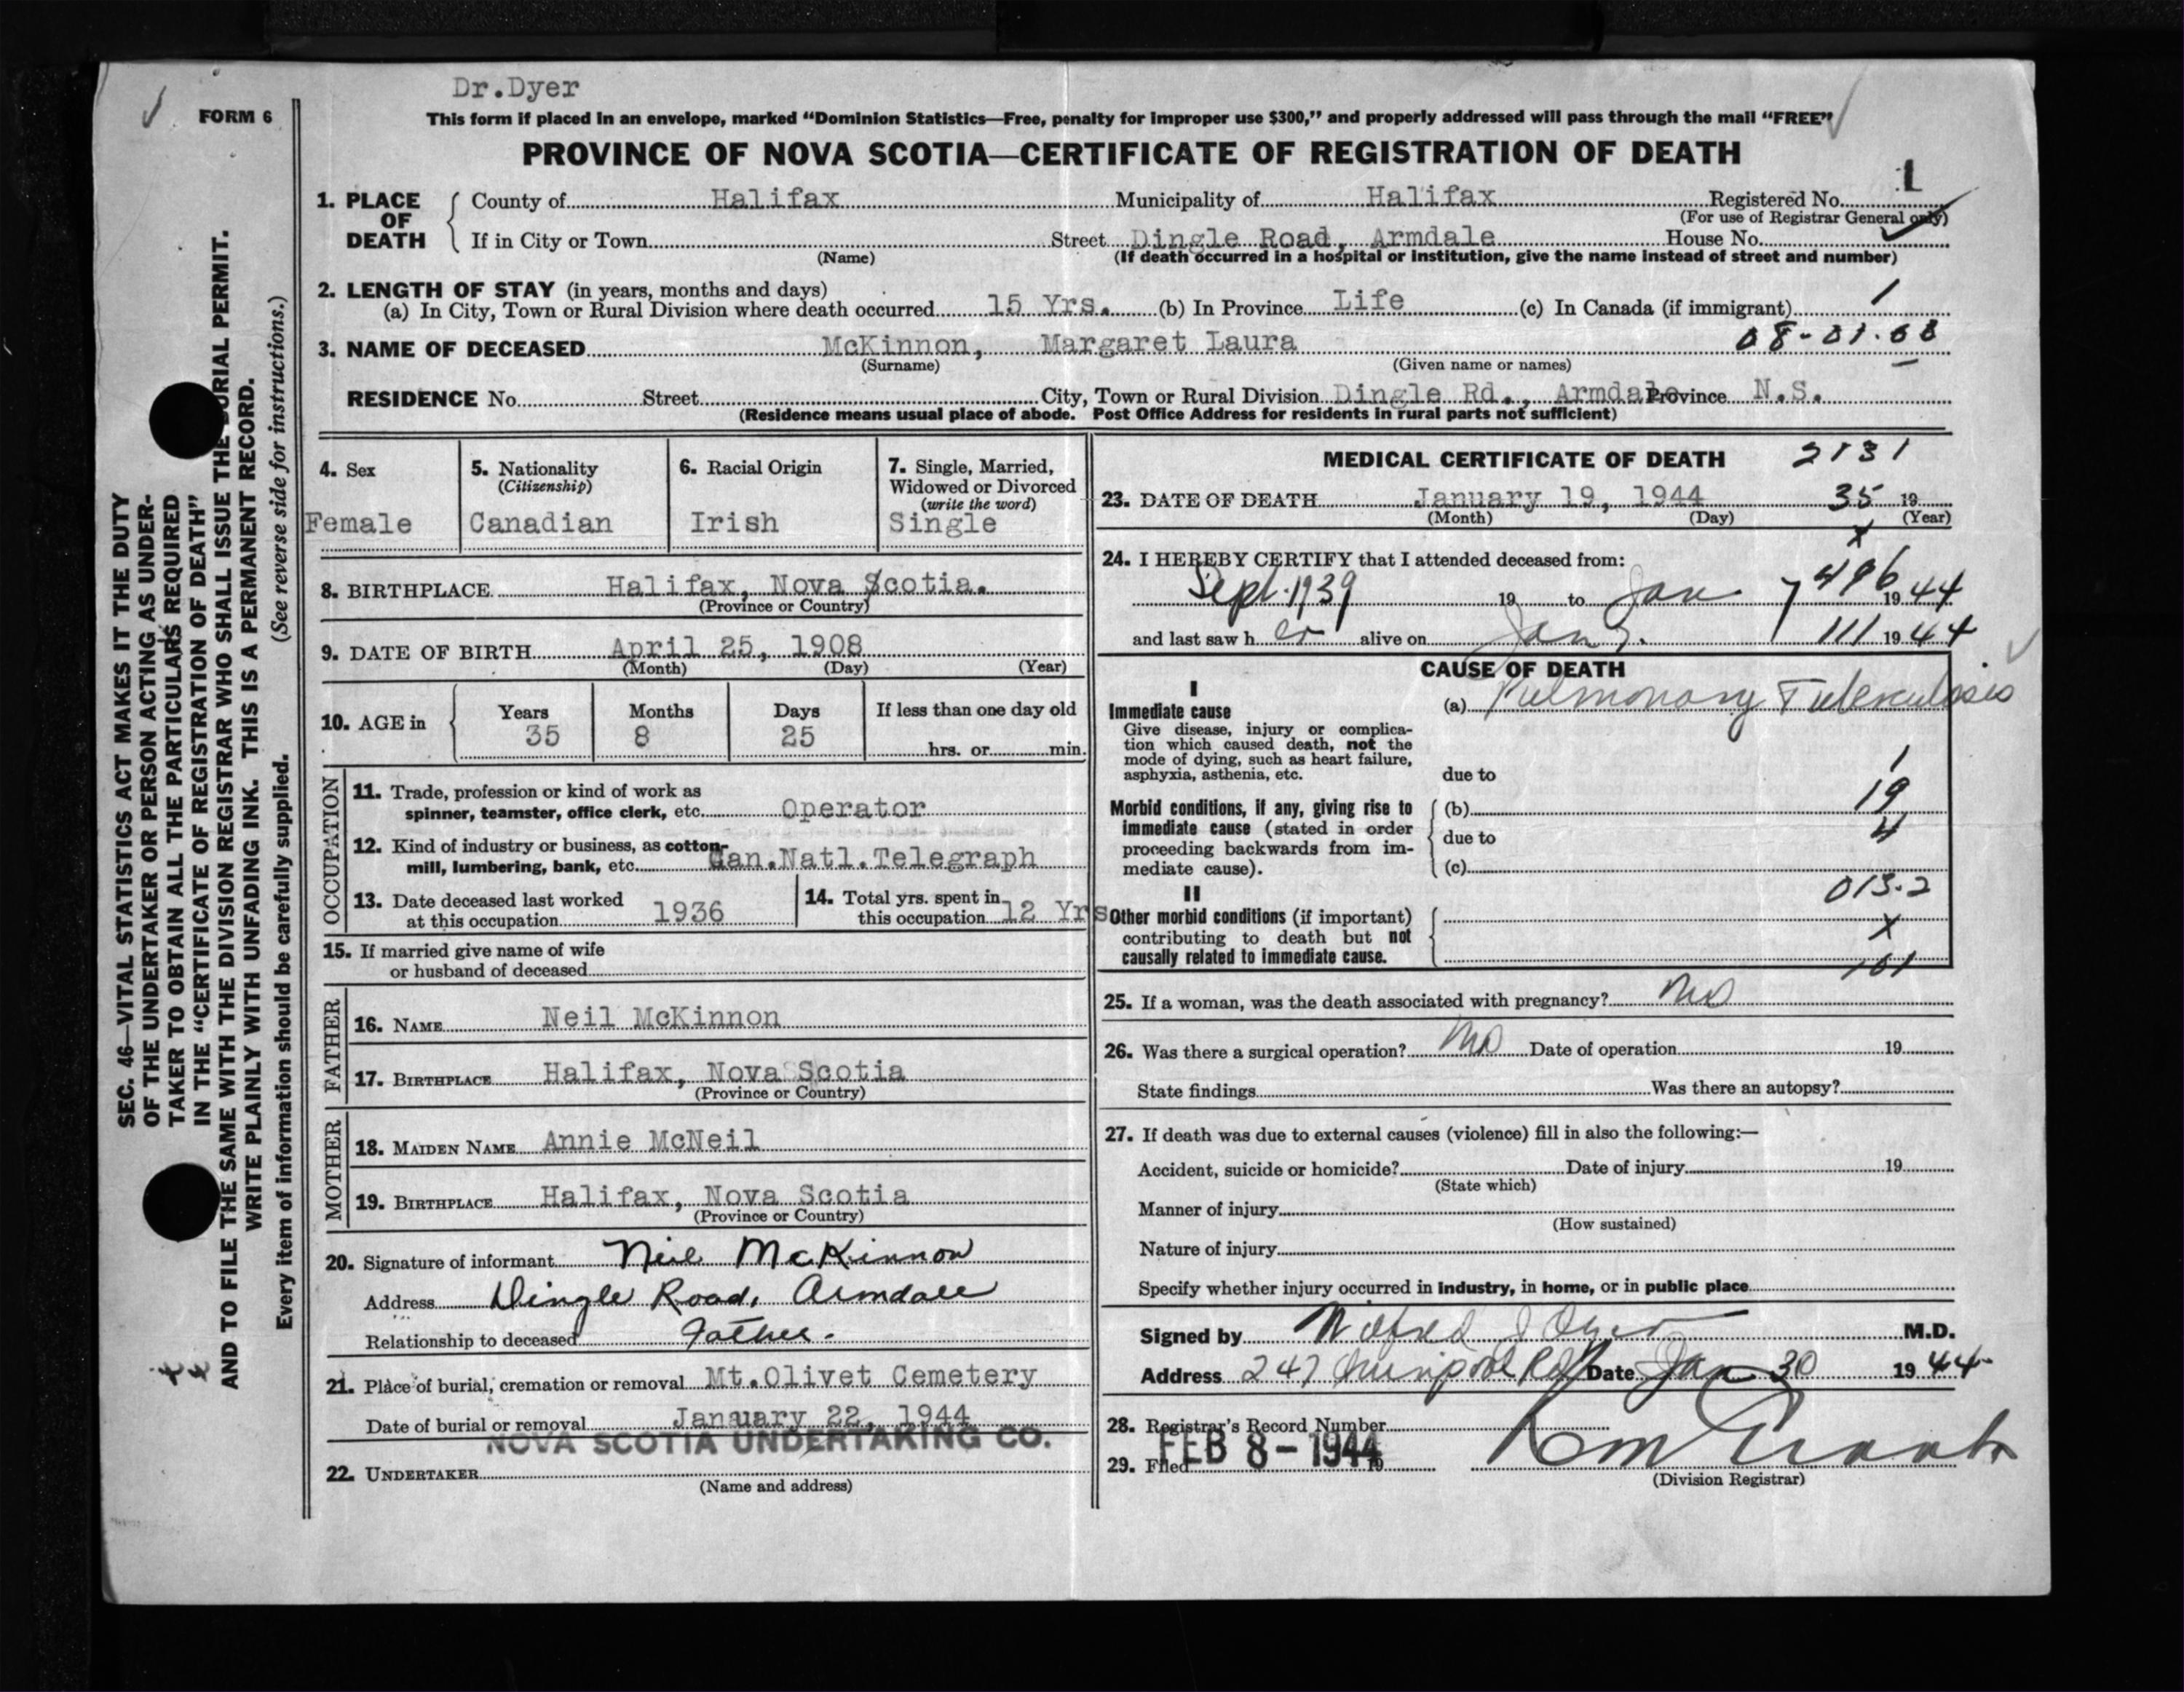 Dr.Dyer
FORM 6
This form if placed in an envelope, marked “Dominion Statistics—Free, penalty for improper use $300,” and properly addressed will pass through the mail “FREE”
PROVINCE OF NOVA SCOTIA—CERTIFICATE OF REGISTRATION OF DEATH
1. PLACE OF DEATH County of Halifax Municipality of Halifax Registered No. 1
(For use of Registrar General only)
If in City or Town Street Dingle Road, Armdale House No.
(Name) (If death occurred in a hospital or institution, give the name instead of street and number)
2. LENGTH OF STAY (in years, months and days)
(a) In City, Town or Rural Division where death occurred 15 Yrs. (b) In Province Life (c) In Canada (if immigrant) 1
08-01.68
3. NAME OF DECEASED McKinnon, Margaret Laura
(Surname) (Given name or names)
RESIDENCE No. Street City, Town or Rural Division Dingle Rd., Armdale Province N.S.
(Residence means usual place of abode. Post Office Address for residents in rural parts not sufficient)
4. Sex
Female
5. Nationality
(Citizenship)
Canadian
6. Racial Origin
Irish
7. Single, Married,
Widowed or Divorced
(write the word)
Single
8. BIRTHPLACE Halifax, Nova Scotia.
(Province or Country)
9. DATE OF BIRTH April 25, 1908
(Month) (Day) (Year)
10. AGE in Years Months Days If less than one day old
35 8 25 hrs. or min.
OCCUPATION
11. Trade, profession or kind of work as
spinner, teamster, office clerk, etc. Operator
12. Kind of industry or business, as cotton-
mill, lumbering, bank, etc. Can.Natl.Telegraph
13. Date deceased last worked
at this occupation 1936
14. Total yrs. spent in
this occupation 12 Yrs
15. If married give name of wife
or husband of deceased
FATHER
16. NAME Neil McKinnon
17. BIRTHPLACE Halifax, Nova Scotia
(Province or Country)
MOTHER
18. MAIDEN NAME Annie McNeil
19. BIRTHPLACE Halifax, Nova Scotia
(Province or Country)
20. Signature of informant Neil McKinnon
Address Dingle Road, Armdale
Relationship to deceased Father.
21. Place of burial, cremation or removal Mt.Olivet Cemetery
Date of burial or removal January 22, 1944
NOVA SCOTIA UNDERTAKING CO.
22. UNDERTAKER
(Name and address)
MEDICAL CERTIFICATE OF DEATH 2131
23. DATE OF DEATH January 19, 1944 35 19
(Month) (Day) (Year)
X
24. I HEREBY CERTIFY that I attended deceased from:
496
Sept. 1939 19 to Jan 7 19 44
and last saw h er alive on Jan 7. 111 19 44
CAUSE OF DEATH
I
Immediate cause
Give disease, injury or complica-
tion which caused death, not the
mode of dying, such as heart failure,
asphyxia, asthenia, etc.
(a) Pulmonary Tuberculosis
due to 1
Morbid conditions, if any, giving rise to
immediate cause (stated in order
proceeding backwards from im-
mediate cause).
(b) 19
due to 4
(c)
013.2
II
Other morbid conditions (if important)
contributing to death but not
causally related to immediate cause.
X
101
25. If a woman, was the death associated with pregnancy? No
26. Was there a surgical operation? No Date of operation 19
State findings Was there an autopsy?
27. If death was due to external causes (violence) fill in also the following:—
Accident, suicide or homicide? Date of injury 19
(State which)
Manner of injury
(How sustained)
Nature of injury
Specify whether injury occurred in industry, in home, or in public place
Signed by Wilfred J Dyer M.D.
Address 247 Date Jan 30 19 44
28. Registrar's Record Number
29. Filed FEB 8 - 1944 19
(Division Registrar)
SEC. 46—VITAL STATISTICS ACT MAKES IT THE DUTY
OF THE UNDERTAKER OR PERSON ACTING AS UNDER-
TAKER TO OBTAIN ALL THE PARTICULARS REQUIRED
IN THE “CERTIFICATE OF REGISTRATION OF DEATH”
AND TO FILE THE SAME WITH THE DIVISION REGISTRAR WHO SHALL ISSUE THE BURIAL PERMIT.
WRITE PLAINLY WITH UNFADING INK. THIS IS A PERMANENT RECORD.
Every item of information should be carefully supplied. (See reverse side for instructions.)